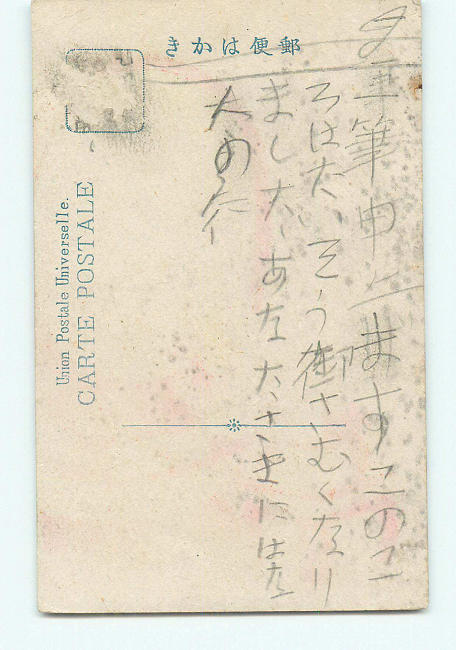 郵便はかき
一筆申上ますこのこ
ろはたいそう御さむくなり
ましたあなたさまにはた
Union Postale Universelle.
CARTE POSTALE